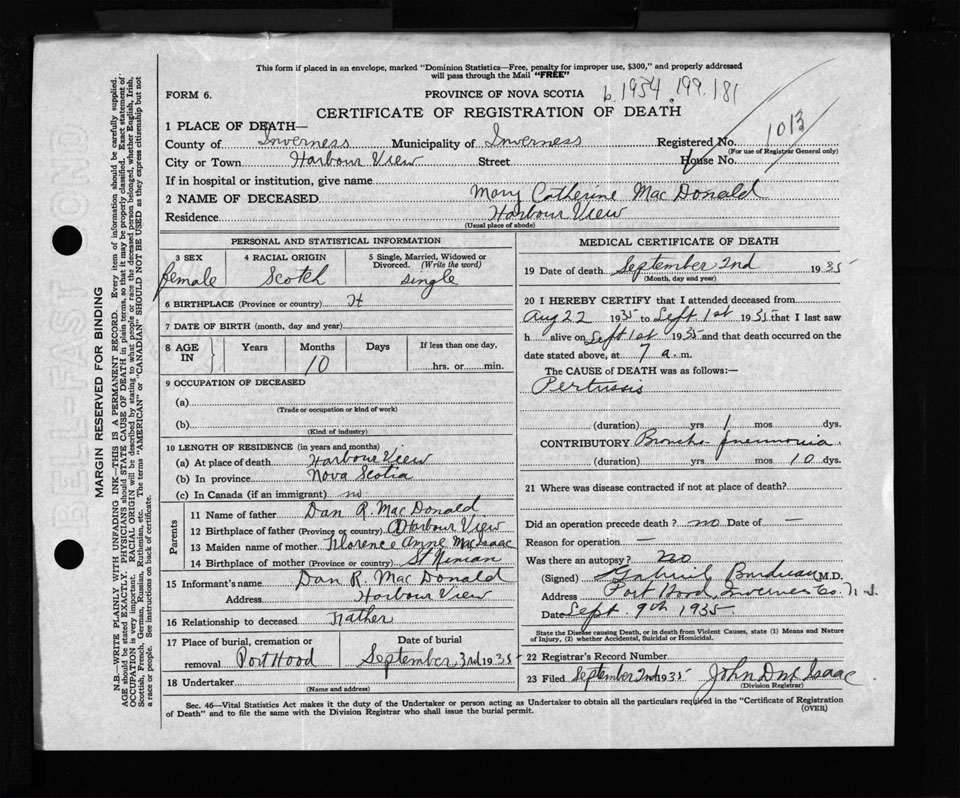 This form if placed in an envelope, marked "Dominion Statistics—Free, penalty for improper use, $300," and properly addressed
will pass through the Mail "FREE"
FORM 6.
PROVINCE OF NOVA SCOTIA
b. 1954. 199. 181
CERTIFICATE OF REGISTRATION OF DEATH
1 PLACE OF DEATH—
County of Inverness Municipality of Inverness Registered No. 1013
(For use of Registrar General only)
City or Town Harbour View Street House No.
If in hospital or institution, give name
2 NAME OF DECEASED Mary Catherine Mac Donald
Residence Harbour View
(Usual place of abode)
PERSONAL AND STATISTICAL INFORMATION
3 SEX 4 RACIAL ORIGIN 5 Single, Married, Widowed or Divorced. (Write the word)
female Scotch single
6 BIRTHPLACE (Province or country) H
7 DATE OF BIRTH (month, day and year)
8 AGE IN Years Months Days If less than one day,
10 hrs. or min.
9 OCCUPATION OF DECEASED
(a)
(Trade or occupation or kind of work)
(b)
(Kind of industry)
10 LENGTH OF RESIDENCE (in years and months)
(a) At place of death Harbour View
(b) In province Nova Scotia
(c) In Canada (if an immigrant) no
Parents
11 Name of father Dan R. Mac Donald
12 Birthplace of father (Province or country) Harbour View
13 Maiden name of mother Florence Anne MacIsaac
14 Birthplace of mother (Province or country) St Ninian
15 Informant's name Dan R. Mac Donald
Address Harbour View
16 Relationship to deceased Father
17 Place of burial, cremation or Date of burial
removal Port Hood September 3rd 1935
18 Undertaker
(Name and address)
MEDICAL CERTIFICATE OF DEATH
19 Date of death September 2nd 1935
(Month, day and year)
20 I HEREBY CERTIFY that I attended deceased from
Aug 22 1935 to Sept 1st 1935 that I last saw
h alive on Sept 1st 1935 and that death occurred on the
date stated above, at 1 a. m.
The CAUSE of DEATH was as follows:—
Pertussis
(duration) yrs 1 mos. dys.
CONTRIBUTORY Broncho-pneumonia
(duration) yrs mos 10 dys.
21 Where was disease contracted if not at place of death?
Did an operation precede death? no Date of —
Reason for operation —
Was there an autopsy? no
(Signed) Gabriel M.D.
Address Port Hood, Inverness Co. N.S.
Date Sept. 9th 1935
State the Disease causing Death, or in death from Violent Causes, state (1) Means and Nature
of Injury, (2) whether Accidental, Suicidal or Homicidal.
22 Registrar's Record Number
23 Filed September 2nd 1935 John D McIsaac
(Division Registrar)
Sec. 46—Vital Statistics Act makes it the duty of the Undertaker or person acting as Undertaker to obtain all the particulars required in the "Certificate of Registration
of Death" and to file the same with the Division Registrar who shall issue the burial permit.
(OVER)
MARGIN RESERVED FOR BINDING
N.B.—WRITE PLAINLY WITH UNFADING INK—THIS IS A PERMANENT RECORD. Every item of information should be carefully supplied.
AGE should be stated EXACTLY. PHYSICIANS should STATE CAUSE OF DEATH in plain terms, so that it may be properly classified. Exact statement of
OCCUPATION is very important. RACIAL ORIGIN will be described by stating to what people or race the deceased person belonged, whether English, Irish,
Scottish, French, German, Russian, Ruthenian, etc. The terms "AMERICAN" or "CANADIAN" SHOULD NOT BE USED as they express citizenship but not
a race or people. See instructions on back of certificate.